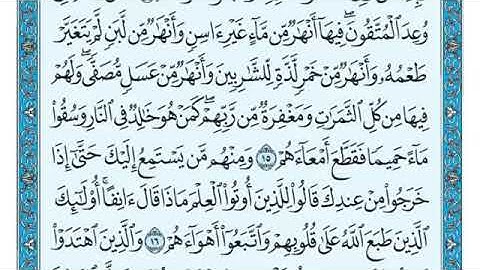 وُعِدَ ٱلْمُتَّقُونَۖ فِيهَآ أَنْهَٰرٌ مِّن مَّآءٍ غَيْرِ ءَاسِنٍ وَأَنْهَٰرٌ مِّن لَّبَنٍ لَّمْ يَتَغَيَّرْ
طَعْمُهُۥ وَأَنْهَٰرٌ مِّنْ خَمْرٍ لَّذَّةٍ لِّلشَّٰرِبِينَ وَأَنْهَٰرٌ مِّنْ عَسَلٍ مُّصَفًّىۖ وَلَهُمْ
فِيهَا مِن كُلِّ ٱلثَّمَرَٰتِ وَمَغْفِرَةٌ مِّن رَّبِّهِمْۖ كَمَنْ هُوَ خَٰلِدٌ فِى ٱلنَّارِ وَسُقُوا۟
مَآءً حَمِيمًا فَقَطَّعَ أَمْعَآءَهُمْ ١٥ وَمِنْهُم مَّن يَسْتَمِعُ إِلَيْكَ حَتَّىٰٓ إِذَا
خَرَجُوا۟ مِنْ عِندِكَ قَالُوا۟ لِلَّذِينَ أُوتُوا۟ ٱلْعِلْمَ مَاذَا قَالَ ءَانِفًاۚ أُو۟لَٰٓئِكَ
ٱلَّذِينَ طَبَعَ ٱللَّهُ عَلَىٰ قُلُوبِهِمْ وَٱتَّبَعُوٓا۟ أَهْوَآءَهُمْ ١٦ وَٱلَّذِينَ ٱهْتَدَوْا۟